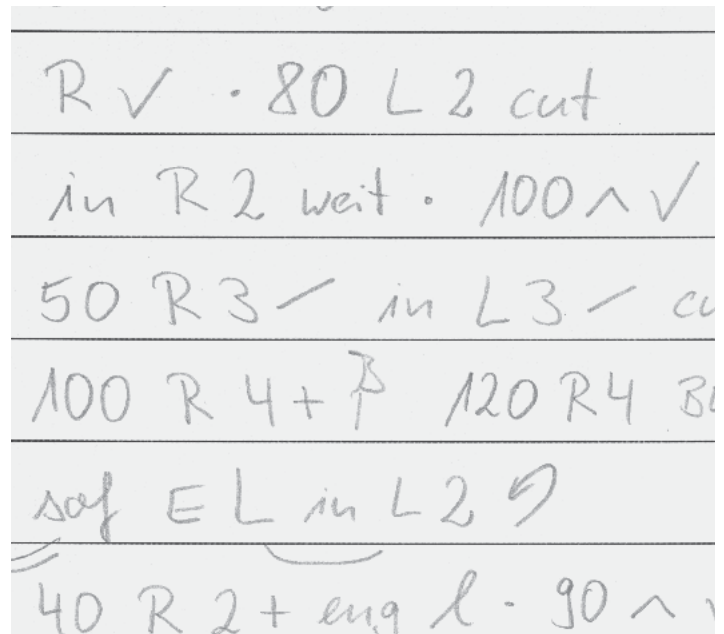 R ✓ · 80 L 2 cut
in R 2 weit · 100 ∧ ✓
50 R 3 / in L 3 /
100 R 4 + 120 R 4
sof E L in L 2
40 R 2 + eng l · 90 ∧